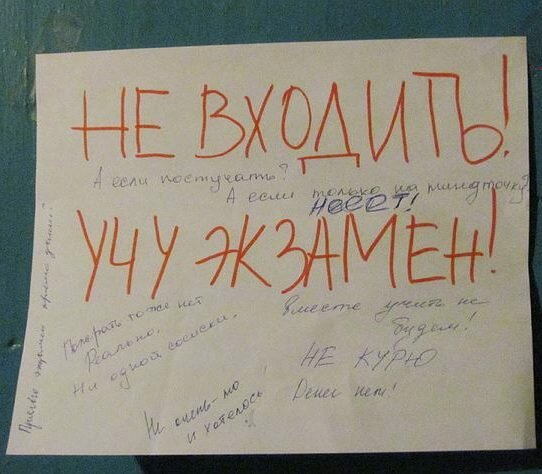 НЕ ВХОДИТЬ!
А если постучать?
А если только на минуточку?
НЕЕЕТ!
УЧУ ЭКЗАМЕН!
Пожрать тоже нет
Реально.
Ни одной сосиски.
Вместе учить не
будем!
НЕ КУРЮ
Денег нет!
Не очень-то
и хотелось
прямо